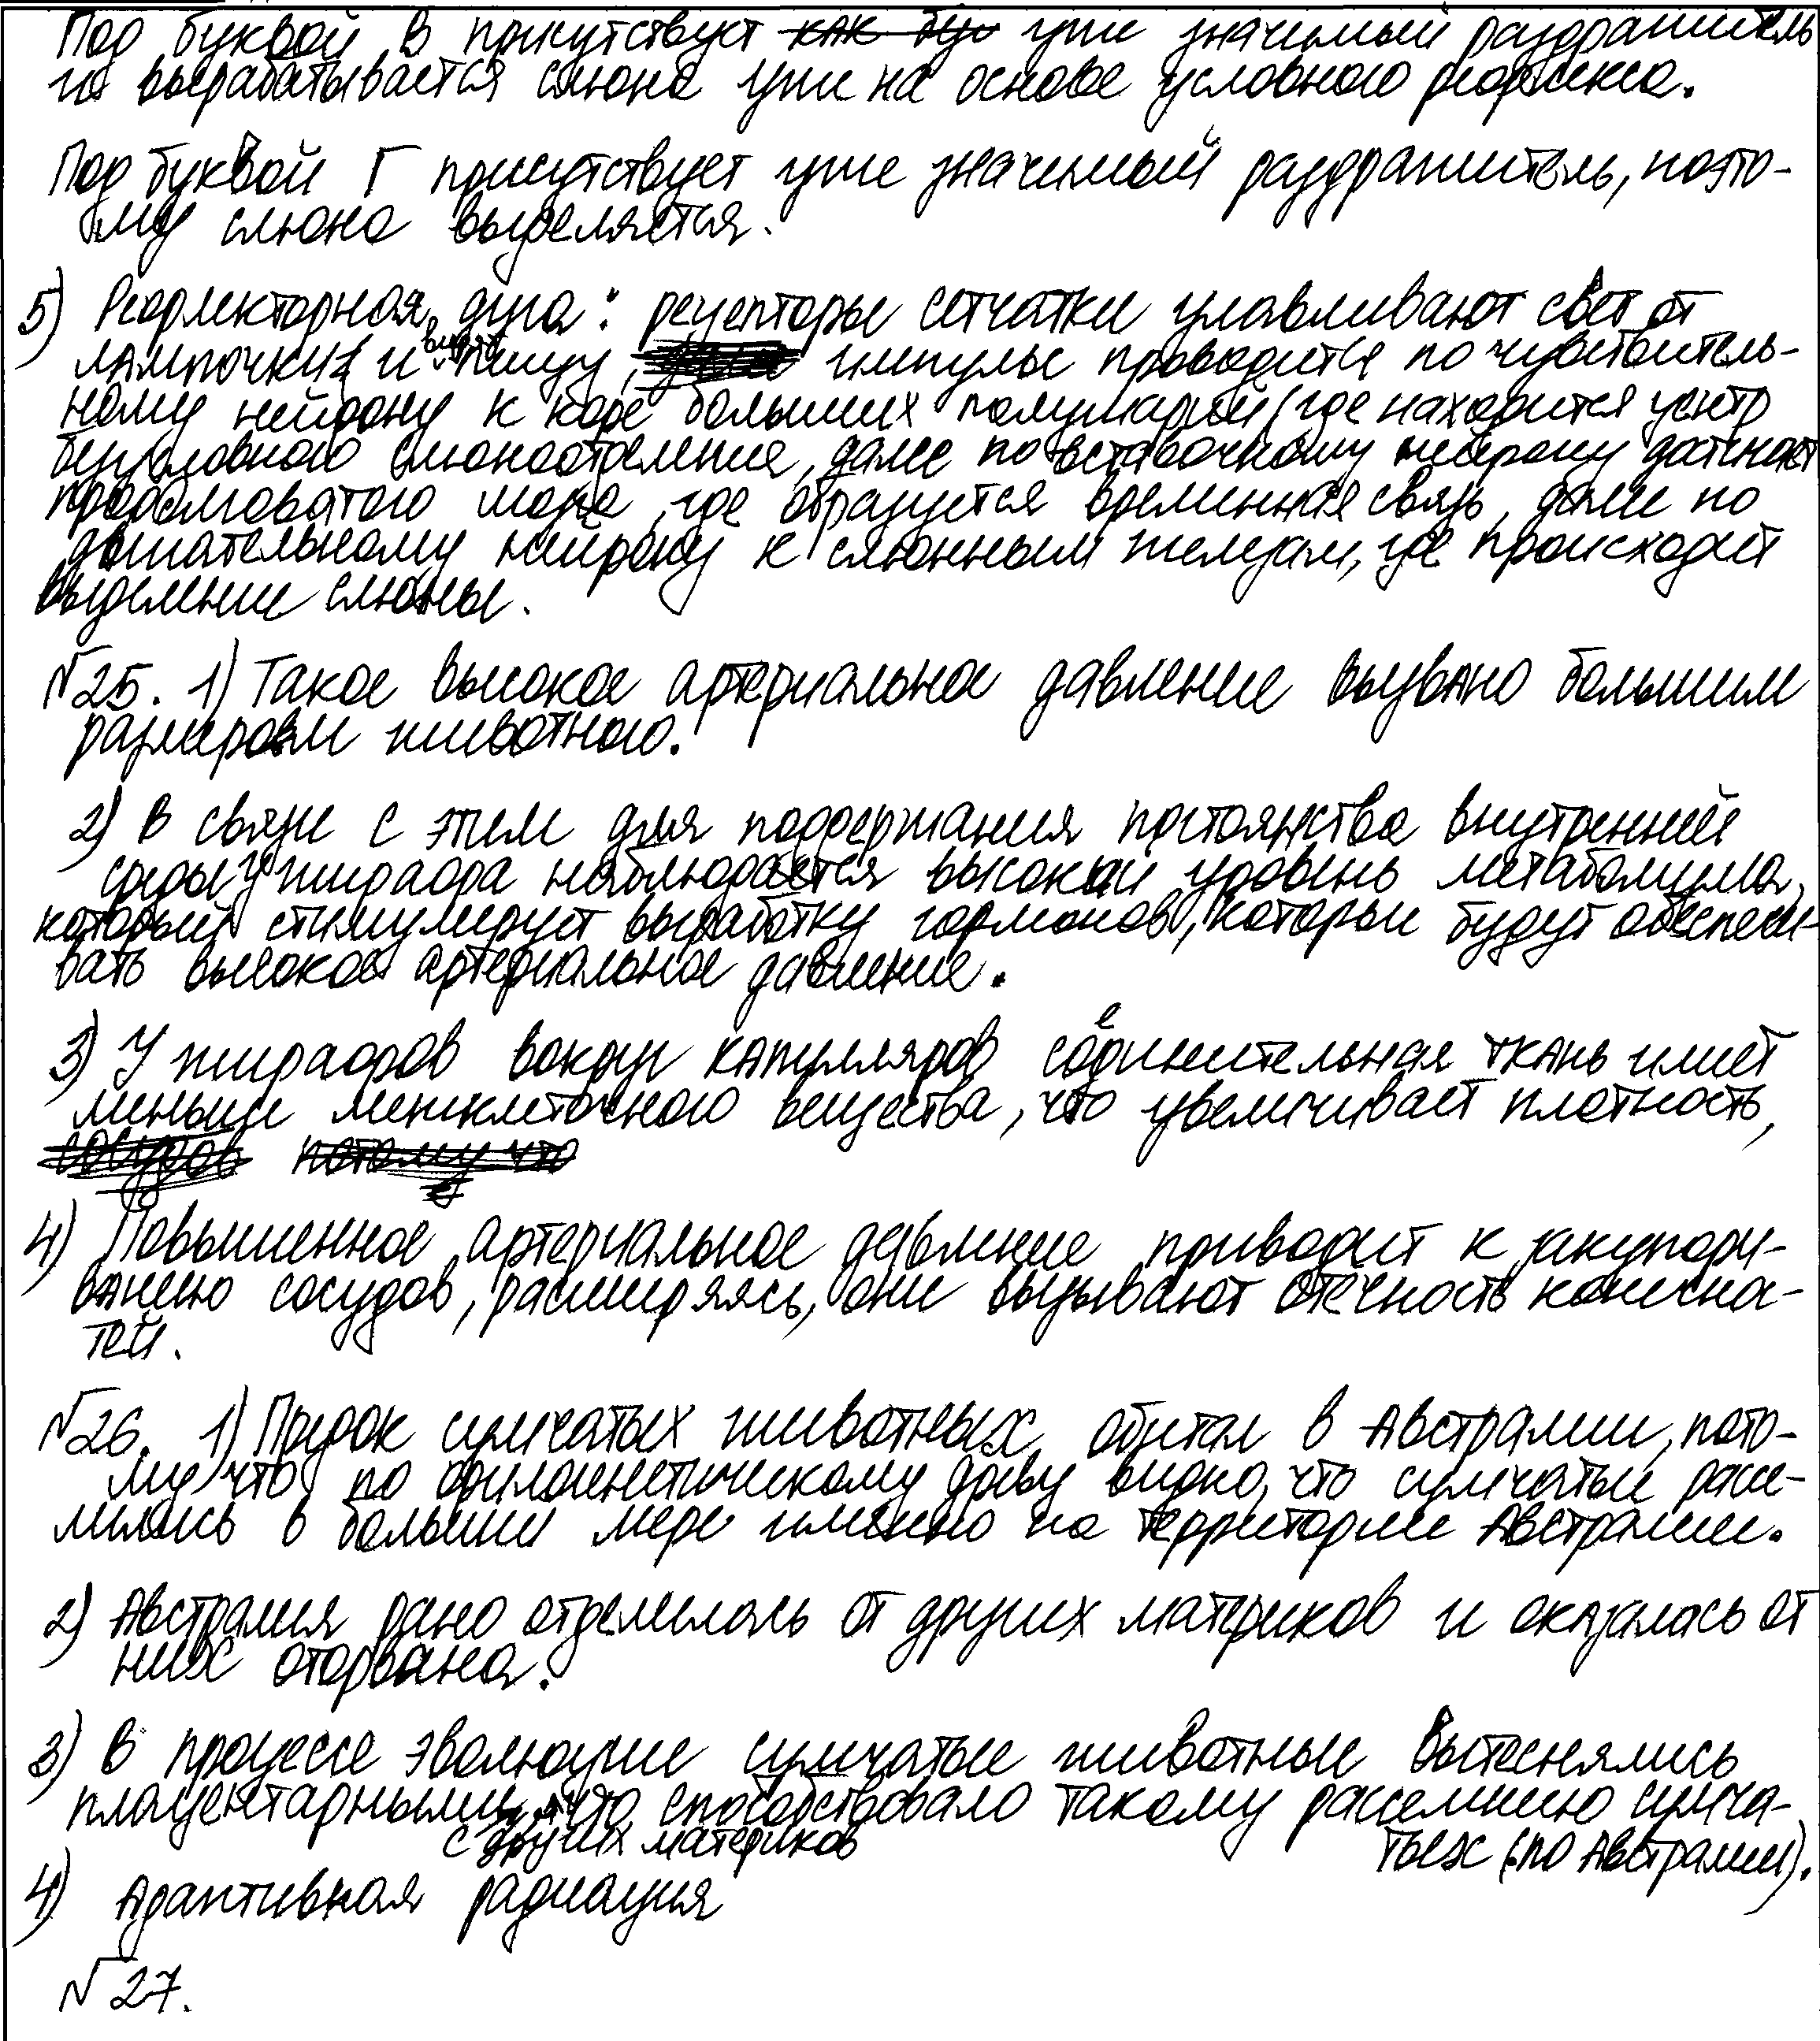 Под буквой В присутствует как бы уже значимый раздражитель
и вырабатывается слюна уже на основе условного рефлекса.
Под буквой Г присутствует уже значимый раздражитель, поэто-
му слюна выделяется.
5) Рефлекторная дуга: рецепторы сетчатки улавливают свет от
лампочки и вид пищу, импульс проводится по чувствитель-
ному нейрону к коре больших полушарий (где находится центр
безусловного слюноотделения, далее по вставочному нейрону достигает
продолговатого мозга, где образуется временная связь, далее по
двигательному нейрону к слюнным железам, где происходит
выделение слюны.
№25. 1) Такое высокое артериальное давление вызвано большим
размером животного.
2) В связи с этим для поддержания постоянства внутренней
среды у жирафа наблюдается высокий уровень метаболизма,
который стимулирует выработку гормонов, которые будут обеспечи-
вать высокое артериальное давление.
3) У жирафов вокруг капилляров соединительная ткань имеет
меньше межклеточного вещества, что увеличивает плотность,
сосудов потому что
4) Повышенное артериальное давление приводит к закупори-
ванию сосудов, расширяясь, они вызывают отечность конечно-
тей.
№26. 1) Предок сумчатых животных обитал в Австралии, пото-
му что по филогенетическому древу видно, что сумчатые рассе-
лились в больше мере именно на территории Австралии.
2) Австралия рано отделилась от других материков и оказалась от
них оторвана.
3) В процессе эволюции сумчатые животные вытеснялись
плацентарными, что способствовало такому расселению сумча-
с других материков
тых (по Австралии).
4) Адаптивная радиация
№27.